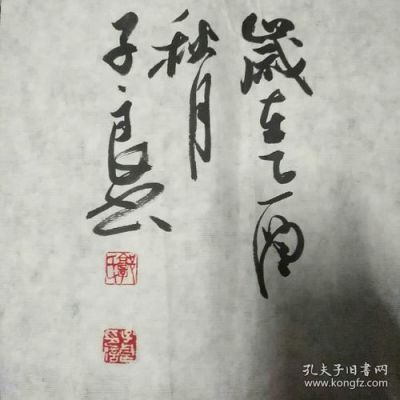 歲在乙酉
秋月
子良书
孔夫子旧书网
www.kongfz.com